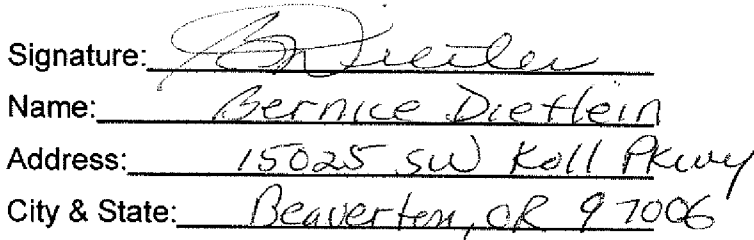 Signature:
Name: Bernice Dietlein
Address: 15025 SW Koll Pkwy
City & State: Beaverton, OR 97006